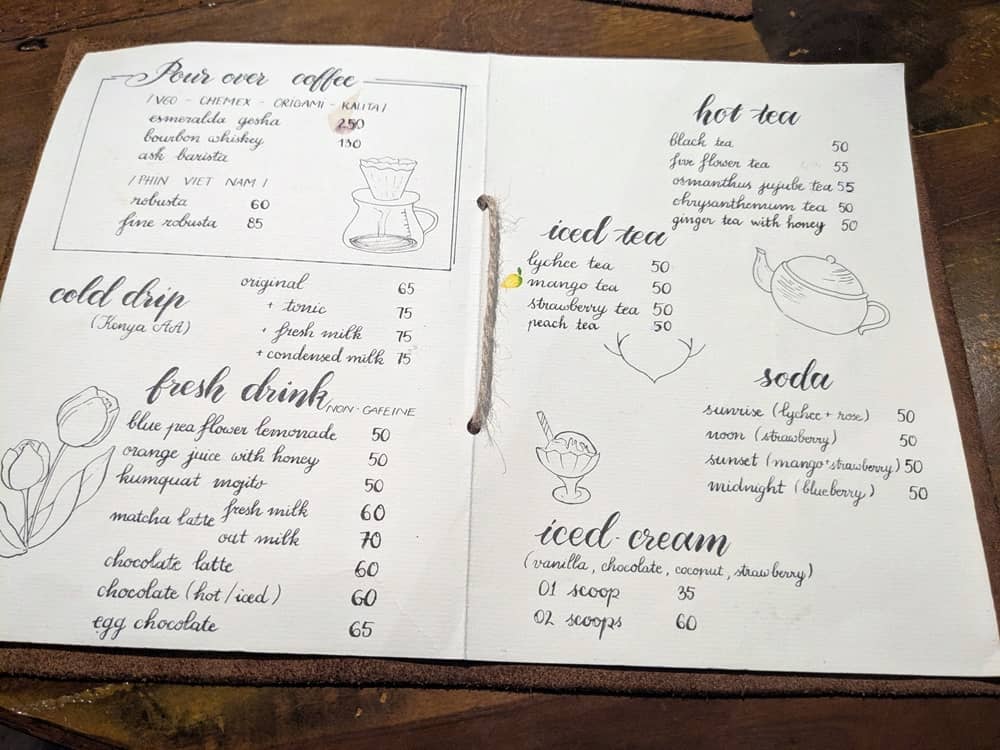 Pour over coffee
/ V60 - CHEMEX - ORIGAMI - KALITA /
esmeralda gesha 250
bourbon whiskey 130
ask barista
/ PHIN VIET NAM /
robusta 60
fine robusta 85
cold drip
(Kenya AA)
original 65
+ tonic 75
+ fresh milk 75
+ condensed milk 75
fresh drink NON-CAFEINE
blue pea flower lemonade 50
orange juice with honey 50
kumquat mojito 50
matcha latte fresh milk 60
out milk 70
chocolate latte 60
chocolate (hot/iced) 60
egg chocolate 65
hot tea
black tea 50
five flower tea 55
osmanthus jujube tea 55
chrysanthemum tea 50
ginger tea with honey 50
iced tea
lychee tea 50
mango tea 50
strawberry tea 50
peach tea 50
soda
sunrise (lychee + rose) 50
noon (strawberry) 50
sunset (mango + strawberry) 50
midnight (blueberry) 50
iced-cream
(vanilla, chocolate, coconut, strawberry)
01 scoop 35
02 scoops 60